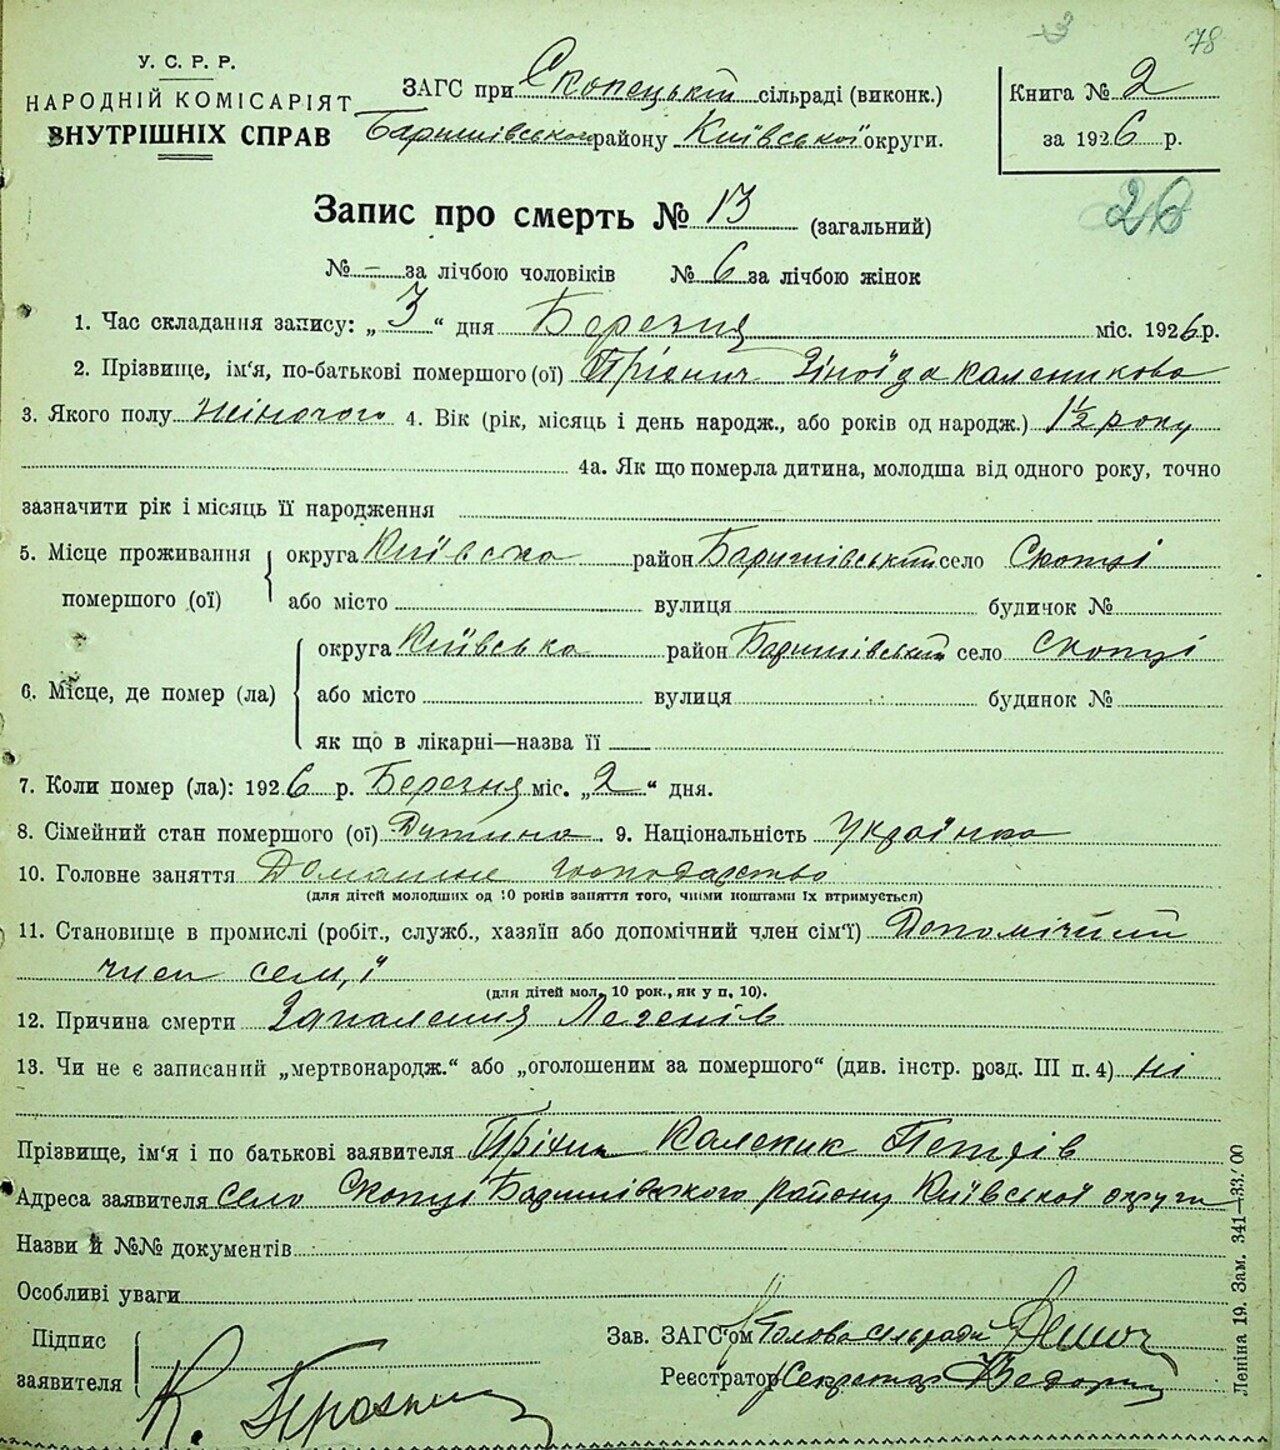 78
У. С. Р. Р.
НАРОДНІЙ КОМІСАРІЯТ
ВНУТРІШНІХ СПРАВ
ЗАГС при Скопецькій сільраді (виконк.)
Баришівського району Київської округи.
Книга № 2
за 1926 р.
26
Запис про смерть № 13 (загальний)
№ – за лічбою чоловіків № 6 за лічбою жінок
1. Час складання запису: „3“ дня Березня міс. 1926 р.
2. Прізвище, ім‘я, по-батькові помершого (ої) Зіноїда каленикова
3. Якого полу Жіночого 4. Вік (рік, місяць і день народж., або років од народж.) 1½ року
4а. Як що померла дитина, молодша від одного року, точно
зазначити рік і місяць її народження
5. Місце проживання помершого (ої) округа Київська район Баришівський село Скопці
або місто вулиця будичок №
6. Місце, де помер (ла) округа Київська район Баришівський село Скопці
або місто вулиця будинок №
як що в лікарні—назва її
7. Коли помер (ла): 1926 р. Березня міс. „2“ дня.
8. Сімейний стан помершого (ої) Дитина 9. Національність Українка
10. Головне заняття Домашне господарство
(для дітей молодших од 10 років заняття того, чиїми коштами їх втримується)
11. Становище в промислі (робіт., служб., хазяїн або допомічний член сім‘ї) Допомічний
член сем,ї
(для дітей мол. 10 рок., як у п. 10).
12. Причина смерти Запалення Легенів
13. Чи не є записаний „мертвонародж.“ або „оголошеним за помершого“ (див. інстр. розд. III п. 4) ні
Прізвище, ім‘я і по батькові заявителя Каленик Петрів
Адреса заявителя село Скопці Баришівського району Київської округи
Назви й №№ документів
Особливі уваги
Підпис
заявителя К.
Зав. ЗАГС‘ом Голова сільради
Реєстратор Секретар
Леніна 19. Зам. 341—33/00